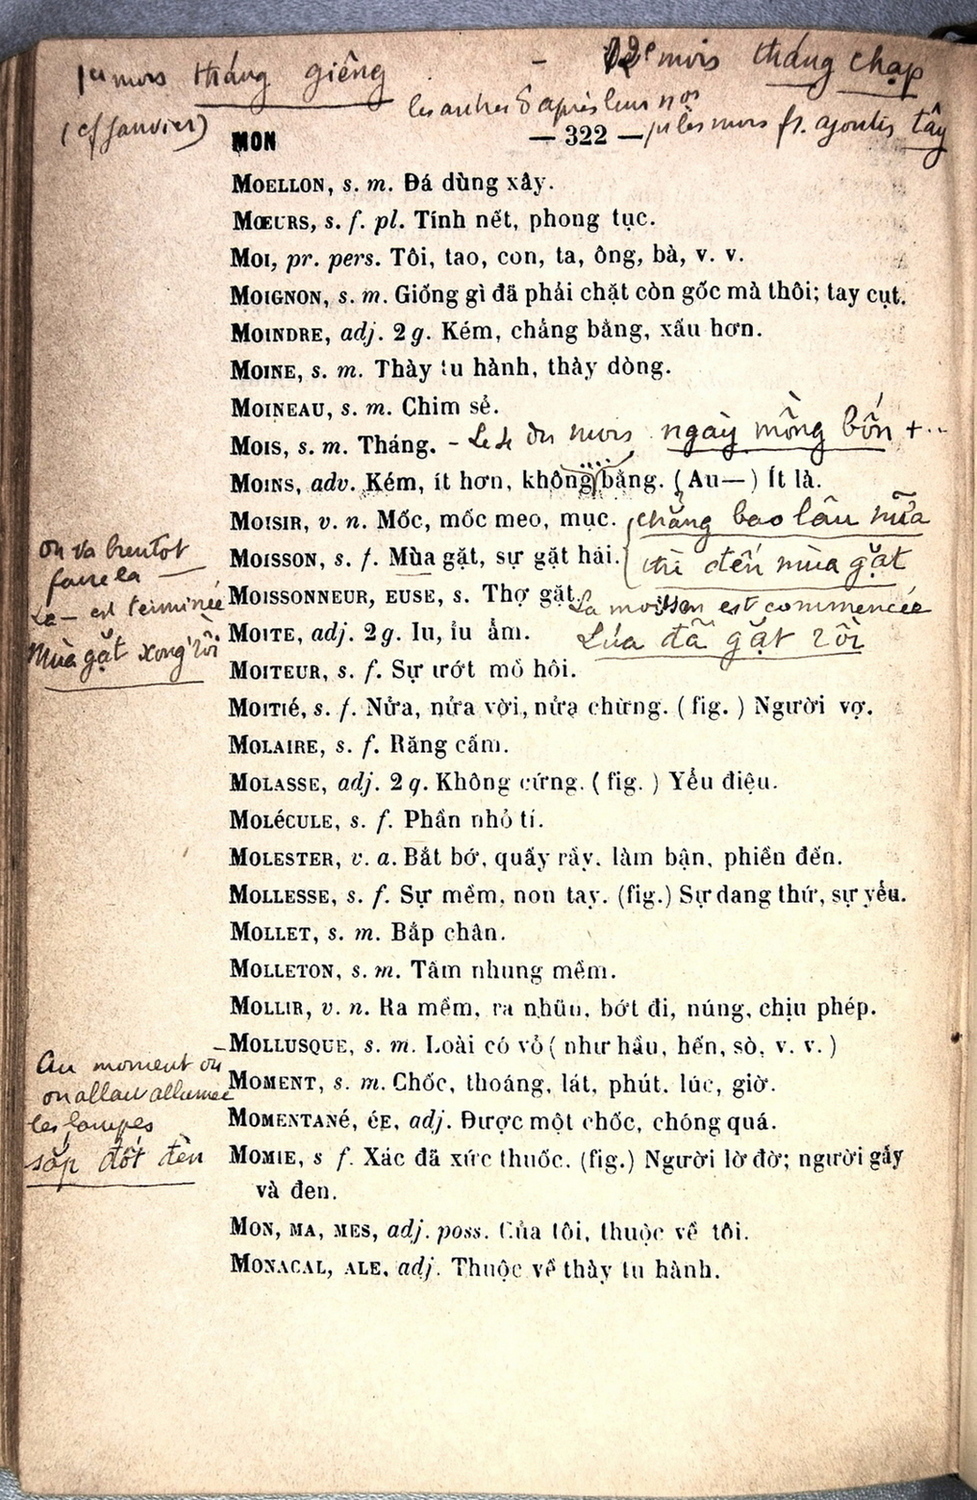 1er mois tháng giêng - 12e mois tháng chạp
(cf Janvier) les autres d'après leur nos
pr les mois fr. ajoutez tây
MON — 322 —
MOELLON, s. m. Đá dùng xây.
MŒURS, s. f. pl. Tính nết, phong tục.
MOI, pr. pers. Tôi, tao, con, ta, ông, bà, v. v.
MOIGNON, s. m. Giống gì đã phải chặt còn gốc mà thôi; tay cụt.
MOINDRE, adj. 2 g. Kém, chẳng bằng, xấu hơn.
MOINE, s. m. Thày tu hành, thày dòng.
MOINEAU, s. m. Chim sẻ.
MOIS, s. m. Tháng. - Le 4 du mois ngày mồng bốn +...
MOINS, adv. Kém, ít hơn, không bằng. (Au—) Ít là.
MOISIR, v. n. Mốc, mốc meo, mục. chẳng bao lâu nữa
MOISSON, s. f. Mùa gặt, sự gặt hái. thì đến mùa gặt
on va bientot
faire la —
La — est terminée
Mùa gặt xong rồi
MOISSONNEUR, EUSE, s. Thợ gặt. La moisson est commencée
MOITE, adj. 2 g. Iu, ỉu ẩm. Lúa đã gặt rồi
MOITEUR, s. f. Sự ướt mồ hôi.
MOITIé, s. f. Nửa, nửa vời, nửa chừng. (fig.) Người vợ.
MOLAIRE, s. f. Răng cấm.
MOLASSE, adj. 2 g. Không cứng. (fig.) Yểu điệu.
MOLéCULE, s. f. Phần nhỏ tí.
MOLESTER, v. a. Bắt bớ, quấy rầy, làm bận, phiền đến.
MOLLESSE, s. f. Sự mềm, non tay. (fig.) Sự dang thứ, sự yếu.
MOLLET, s. m. Bắp chân.
MOLLETON, s. m. Tấm nhung mềm.
MOLLIR, v. n. Ra mềm, ra nhũn, bớt đi, núng, chịu phép.
MOLLUSQUE, s. m. Loài có vỏ (như hầu, hến, sò, v. v.)
Au moment où
on allait allumer
les lampes
sắp đốt đèn
MOMENT, s. m. Chốc, thoáng, lát, phút, lúc, giờ.
MOMENTANé, éE, adj. Được một chốc, chóng quá.
MOMIE, s f. Xác đã xức thuốc. (fig.) Người lờ đờ; người gầy
và đen.
MON, MA, MES, adj. poss. Của tôi, thuộc về tôi.
MONACAL, ALE, adj. Thuộc về thày tu hành.